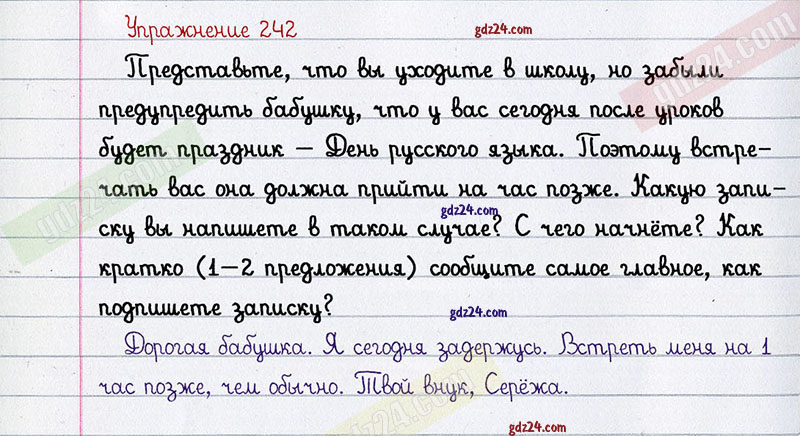 Упражнение 242
gdz24.com
Представьте, что вы уходите в школу, но забыли
предупредить бабушку, что у вас сегодня после уроков
будет праздник — День русского языка. Поэтому встре-
чать вас она должна прийти на час позже. Какую запи-
gdz24.com
ску вы напишете в таком случае? С чего начнёте? Как
кратко (1—2 предложения) сообщите самое главное, как
подпишете записку?
gdz24.com
Дорогая бабушка. Я сегодня задержусь. Встреть меня на 1
час позже, чем обычно. Твой внук, Серёжа.
gdz24.com
gdz24.com
gdz24.com
gdz24.com